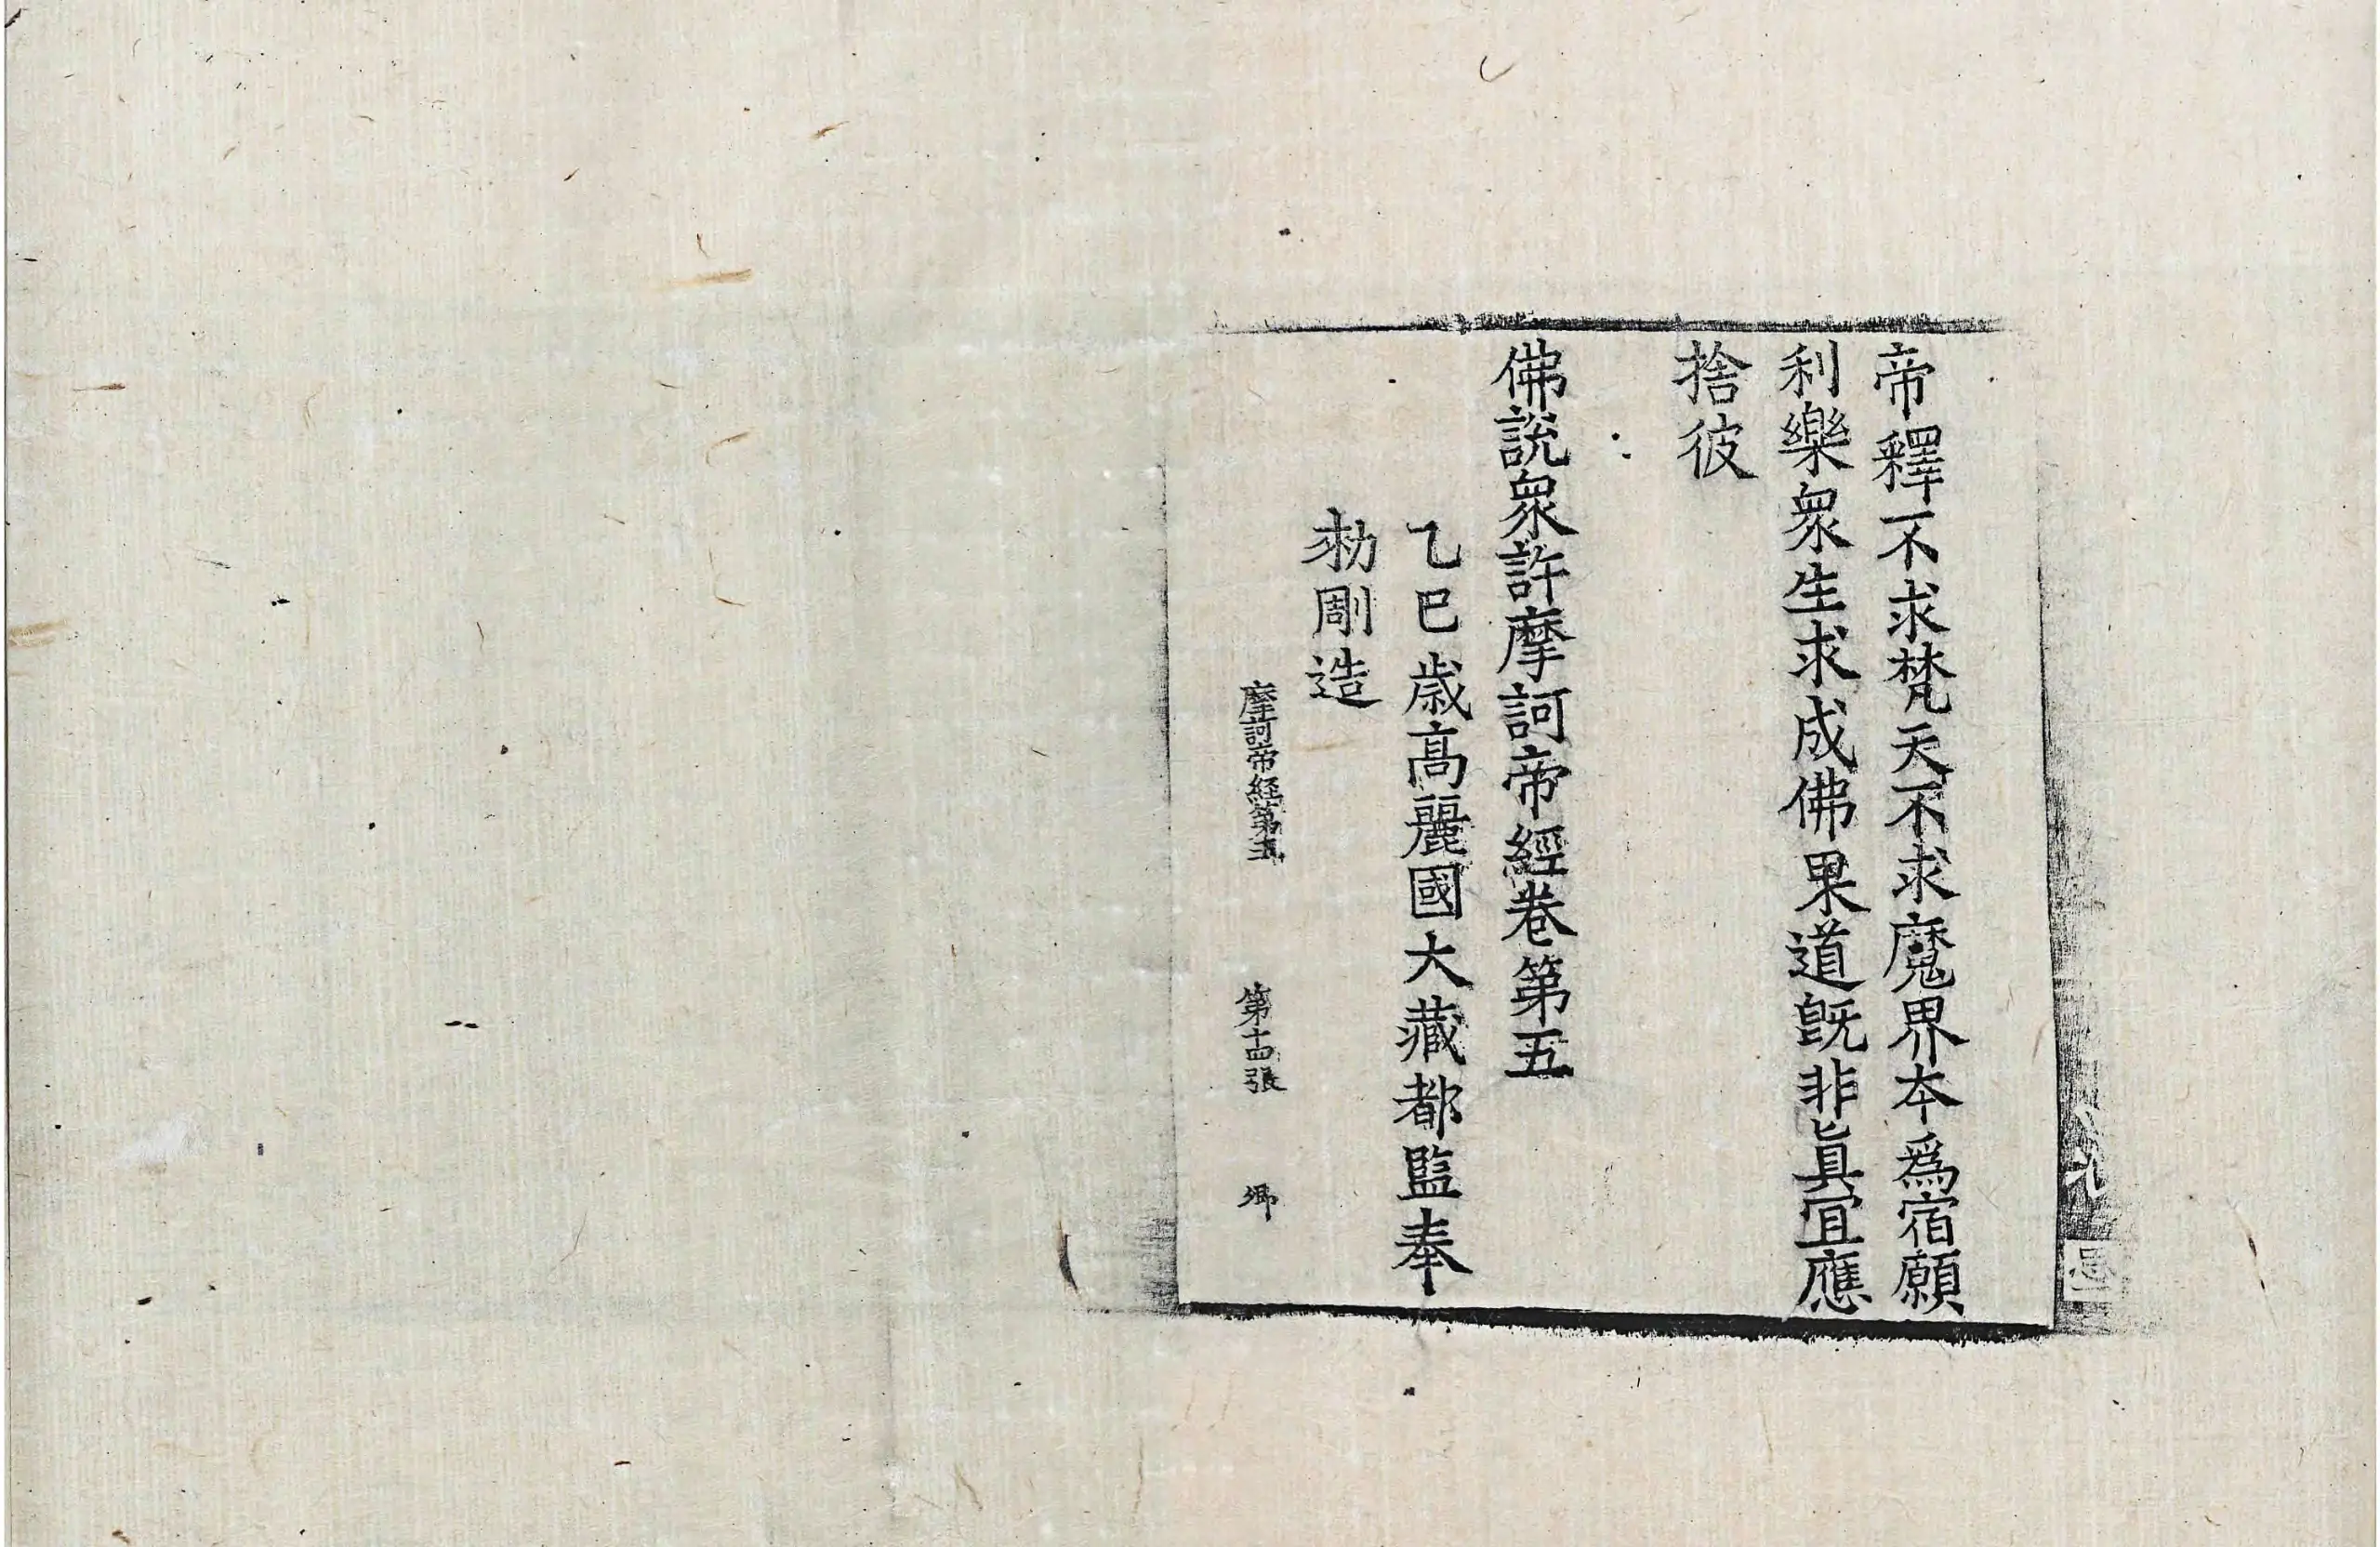 帝釋不求梵天不求魔界夲爲宿願
利樂衆生求成佛果道旣非眞冝應
捨彼
佛說衆許摩訶帝經卷第五
乙巳歲高麗國大藏都監奉
勑剛造
摩訶帝経第五
第十四張